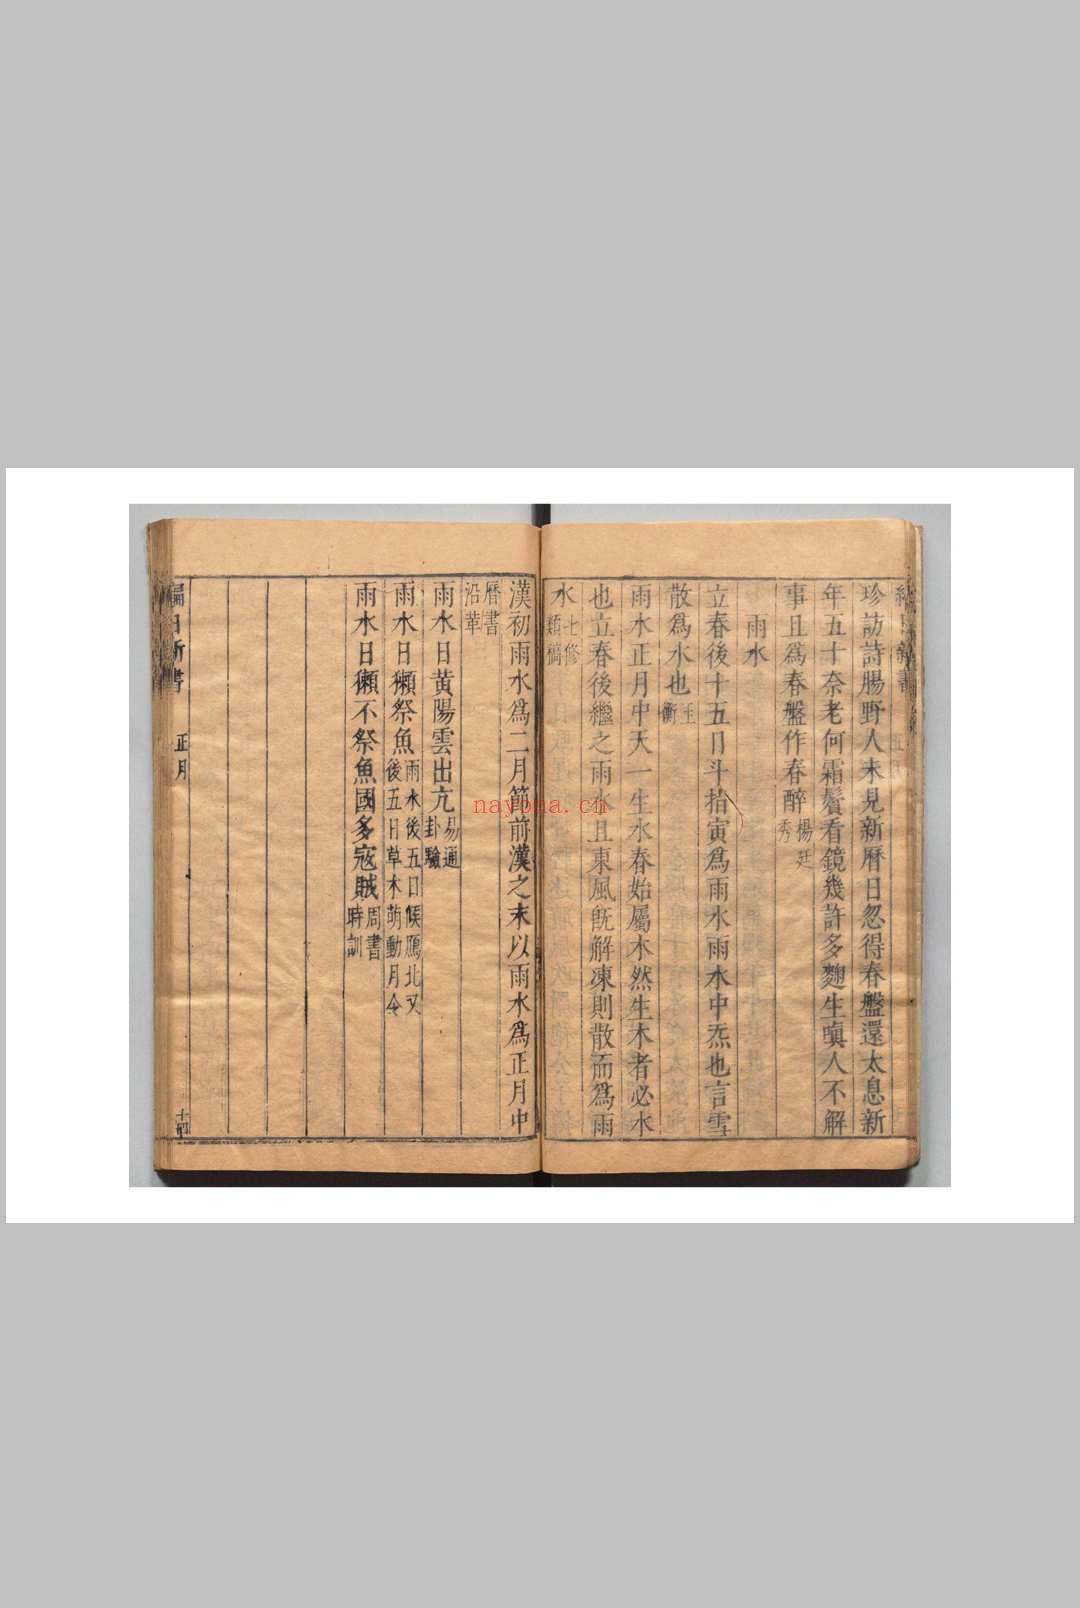 珍訪詩腸野人未見新曆日忽得春盤還太息新
年五十奈老何霜鬢看鏡幾許多麴生嗔人不解
事且爲春盤作春醉楊廷秀
雨水
立春後十五日斗指寅爲雨水雨水中炁也言雪
散爲水也玉衡
雨水正月中天一生水春始屬木然生木者必水
也立春後繼之雨水且東風旣解凍則散而爲雨
水七修類稿
漢初雨水爲二月節前漢之末以雨水爲正月中
曆書沿革
雨水日黃陽雲出亢易通卦驗
雨水日獺祭魚雨水後五日候鴈北又後五日草木萌動月令
雨水日獺不祭魚國多寇賊周書時訓
編日新書 正月 十四
nayona.cn